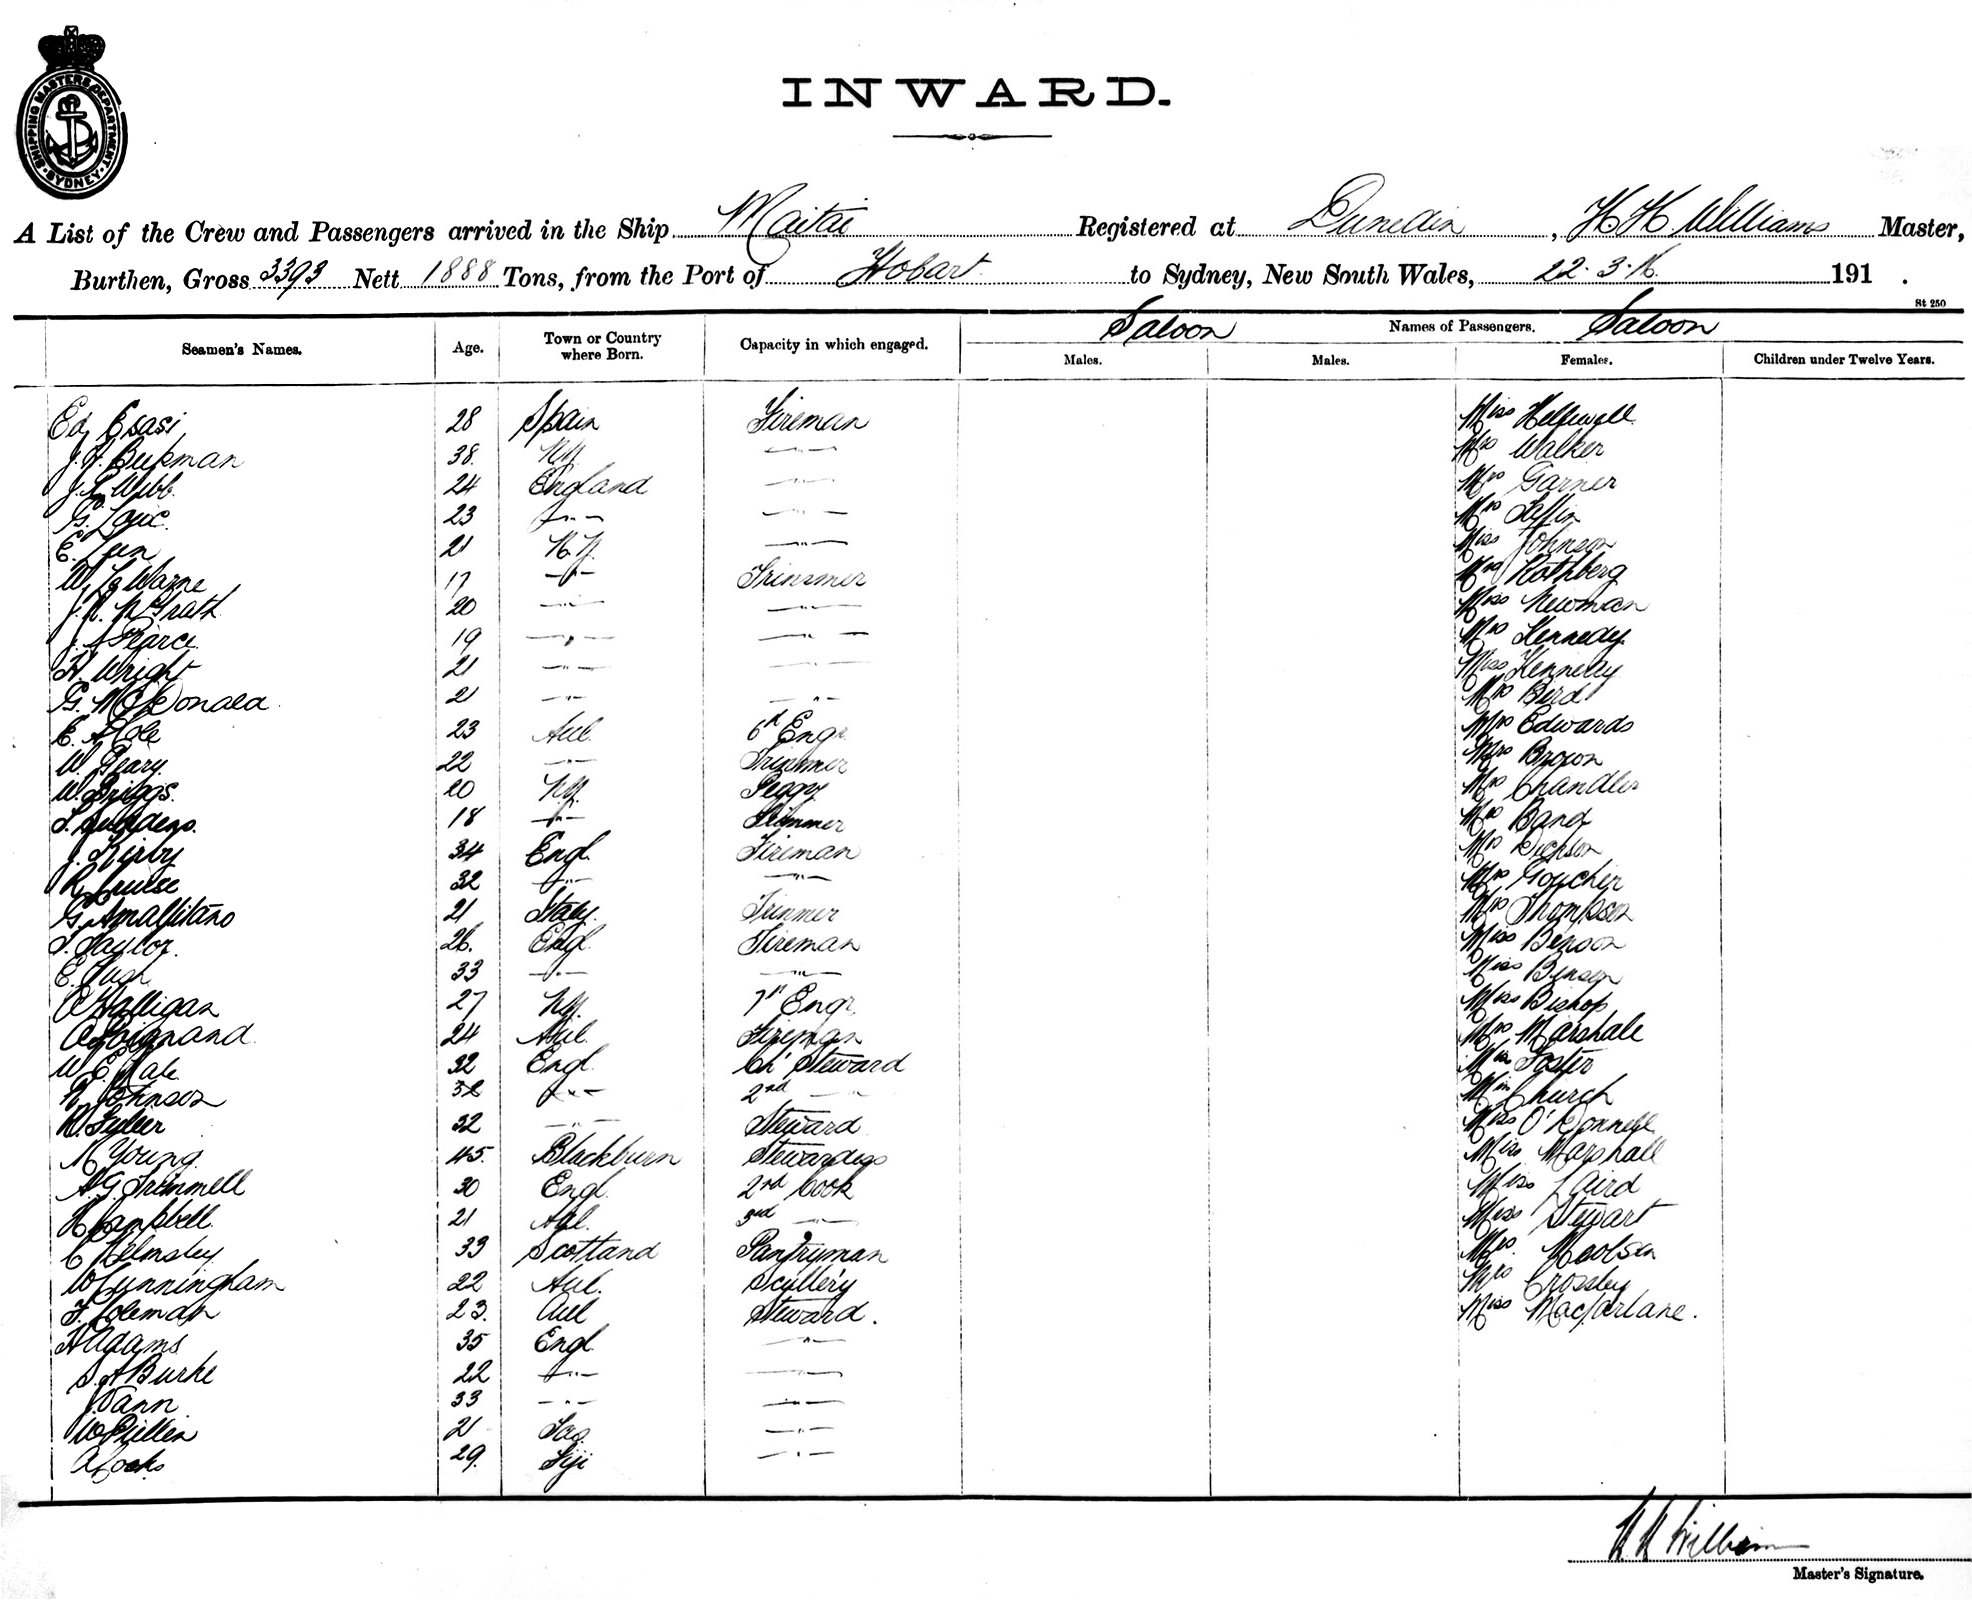 SHIPPING MASTERS DEPARTMENT
SYDNEY
INWARD.
A List of the Crew and Passengers arrived in the Ship Maitai Registered at Dunedin, H H Williams Master,
Burthen, Gross 3393 Nett 1888 Tons, from the Port of Hobart to Sydney, New South Wales, 22.3.16 191 .
St 250
Seamen's Names. Age. Town or Country where Born. Capacity in which engaged. Saloon Names of Passengers. Saloon
Males. Males. Females. Children under Twelve Years.
Ed Esasi 28 Spain Fireman Miss Helliwell
J. H. Beekman 38. NZ —"— Mrs Walker
J. Webb 24 England —"— Mrs Garner
G. 23 —"— —"— Mrs
E. 21 N.Z. —"— Miss Johnson
W. Le Warne 17 —"— Trimmer Mrs Rothberg
J. R. McGrath 20 —"— —"— Miss Newman
J. A Pearce 19 —"— —"— Mrs Kennedy
H. Wright 21 —"— —"— Miss Kennedy
G. McDonald 21 —"— —"— Mrs Bird
E. Hole 23 Aus. 6th Engr Mrs Edwards
W. Geary 22 —"— Trimmer Mrs Brown
W. Briggs. 20 NZ. Peggy Mrs Chandler
18 —"— Trimmer Mrs Band
J. Kirby 34 Engl. Fireman Mrs Dickson
R. Cruise 32 —"— —"— Mrs Goucher
G. Amalfitano 21 Italy. Trimmer Mrs Thompson
T. Taylor. 26. Engl. Fireman Miss Benson
E. 33 —"— —"— Miss Benson
Halligan 27 NZ. 7th Engr. Miss Bishop
24 Aus. Fireman Mrs Marshall
W. E. 32 Engl. Ch Steward Foster
R Johnson 32 —"— 2nd —"— Church
Fuller 32 —"— Steward Miss O'Donnell
Young. 45. Blackburn Stewardess Miss Marshall
A. G. Trimmell 30 Engl. 2nd Cook Miss Laird
H Campbell 21 3rd —"— Miss Stewart
C Helmsley 33 Scotland Pantryman Mrs.
W Cunningham 22 Aus. Scullery Mrs Crossley
F. Coleman 23. Aus Steward. Miss MacFarlane.
H Adams 35 Engl. —"—
S. A Burke 22 —"— —"—
J. Vann 33 —"— —"—
W 21 Tas. —"—
A Cocks 29. Fiji —"—
H H Williams
Master's Signature.